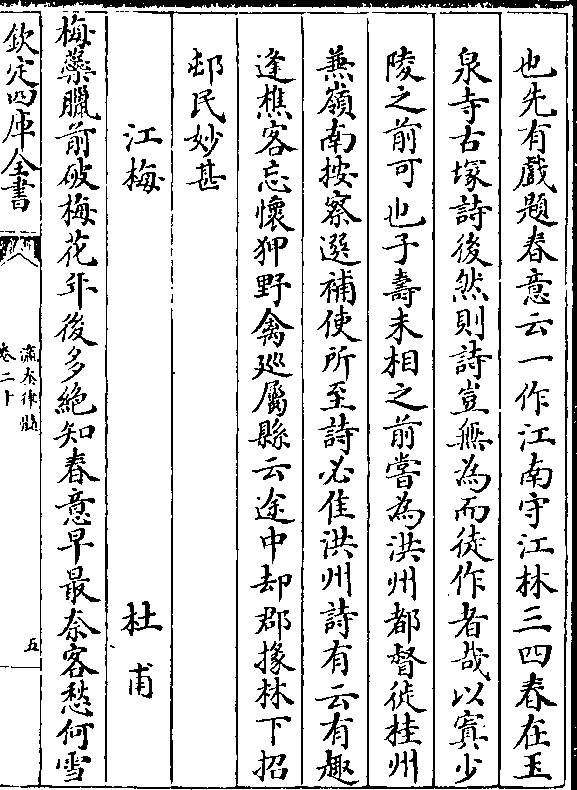 也先有戲題春意云一作江南守江林三四春在玉
泉寺古塚詩後然則詩豈無為而徒作者哉以寘少
陵之前可也子壽未相之前嘗為洪州都督徙桂州
兼嶺南按察選補使所至詩必佳洪州詩有云有趣
逢樵客忘懷狎野禽廵屬縣云途中却郡掾林下招
邨民妙甚
江梅
杜甫
梅蘂臘前破梅花年後多絶知春意早最奈客愁何雪
欽定四庫全書
瀛奎律髓
卷二十
五